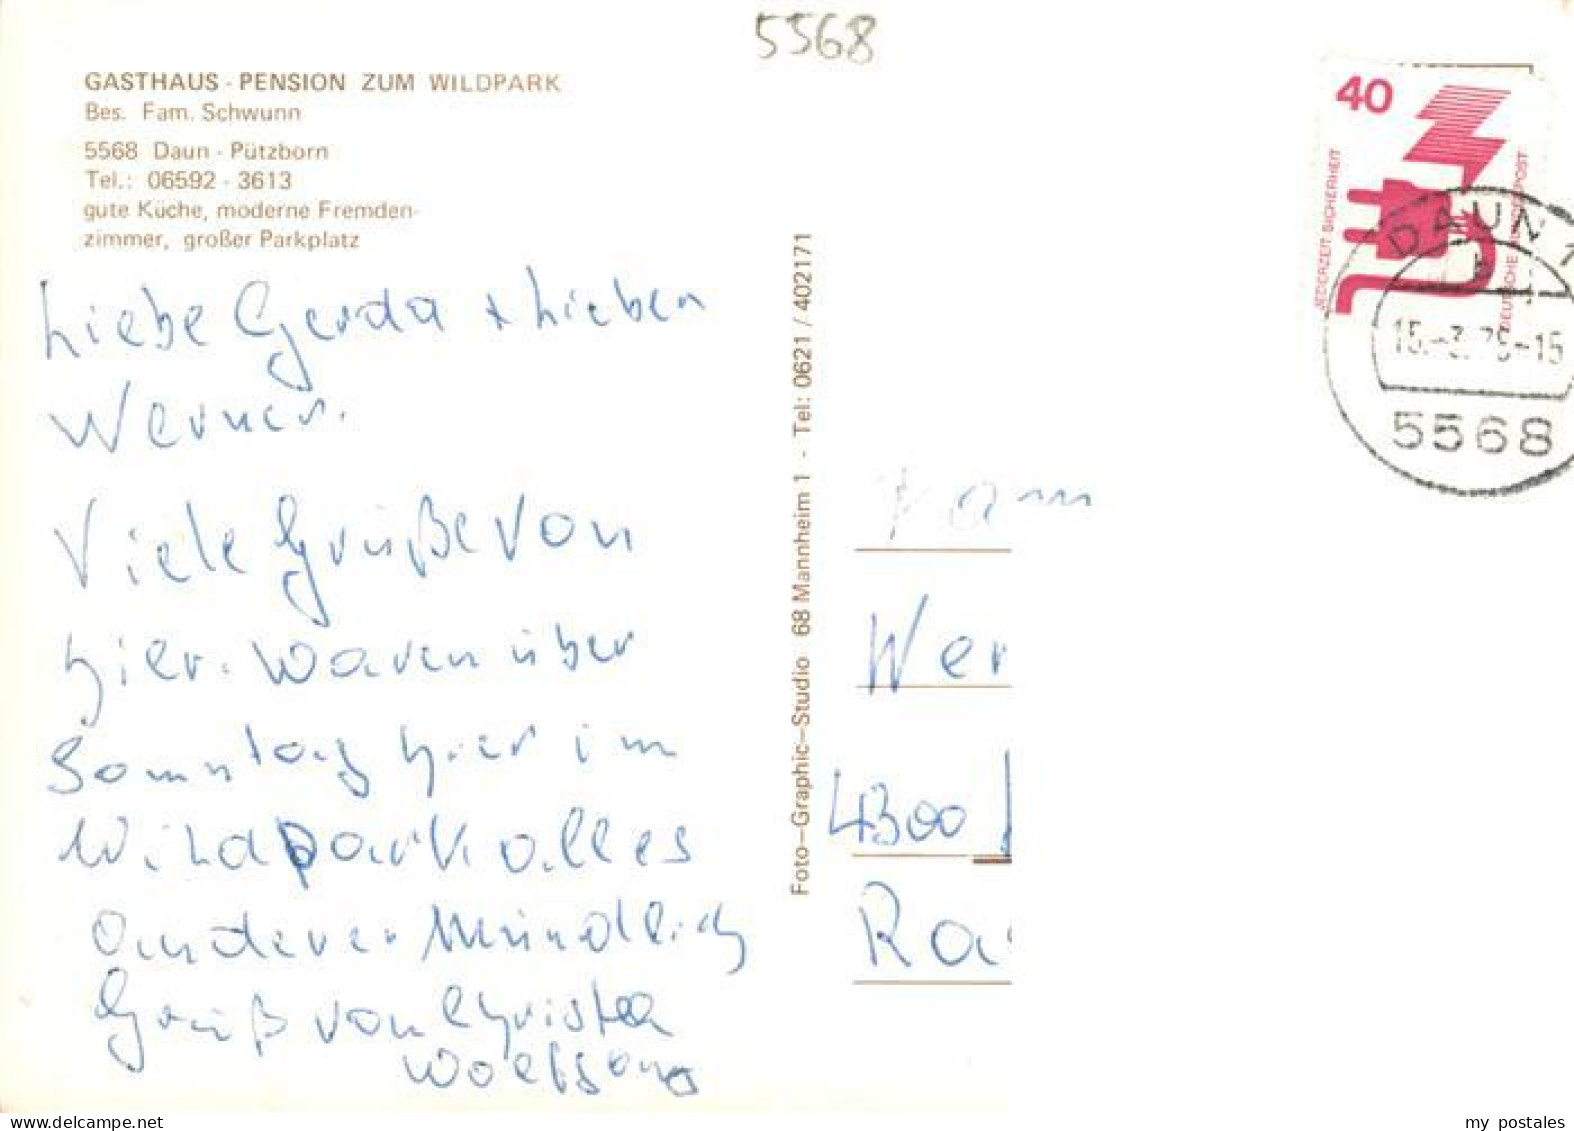 5568
GASTHAUS - PENSION ZUM WILDPARK
Bes. Fam. Schwunn
5568 Daun - Pützborn
Tel.: 06592 - 3613
gute Küche, moderne Fremden-
zimmer, großer Parkplatz
Liebe Gerda + Lieben
Werner.
Viele Grüße von
hier. Waren über
Sonntag hier im
Wildpark alles
andere Mündlich
Gruß von Christa
Wolfgang
Foto-Graphic-Studio 68 Mannheim 1 - Tel: 0621 / 402171
40
JEDERZEIT SICHERHEIT
DEUTSCHE BUNDESPOST
DAUN 1
b
15.-3.75-15
5568
Fam
Wer
4300
Ra
my postales